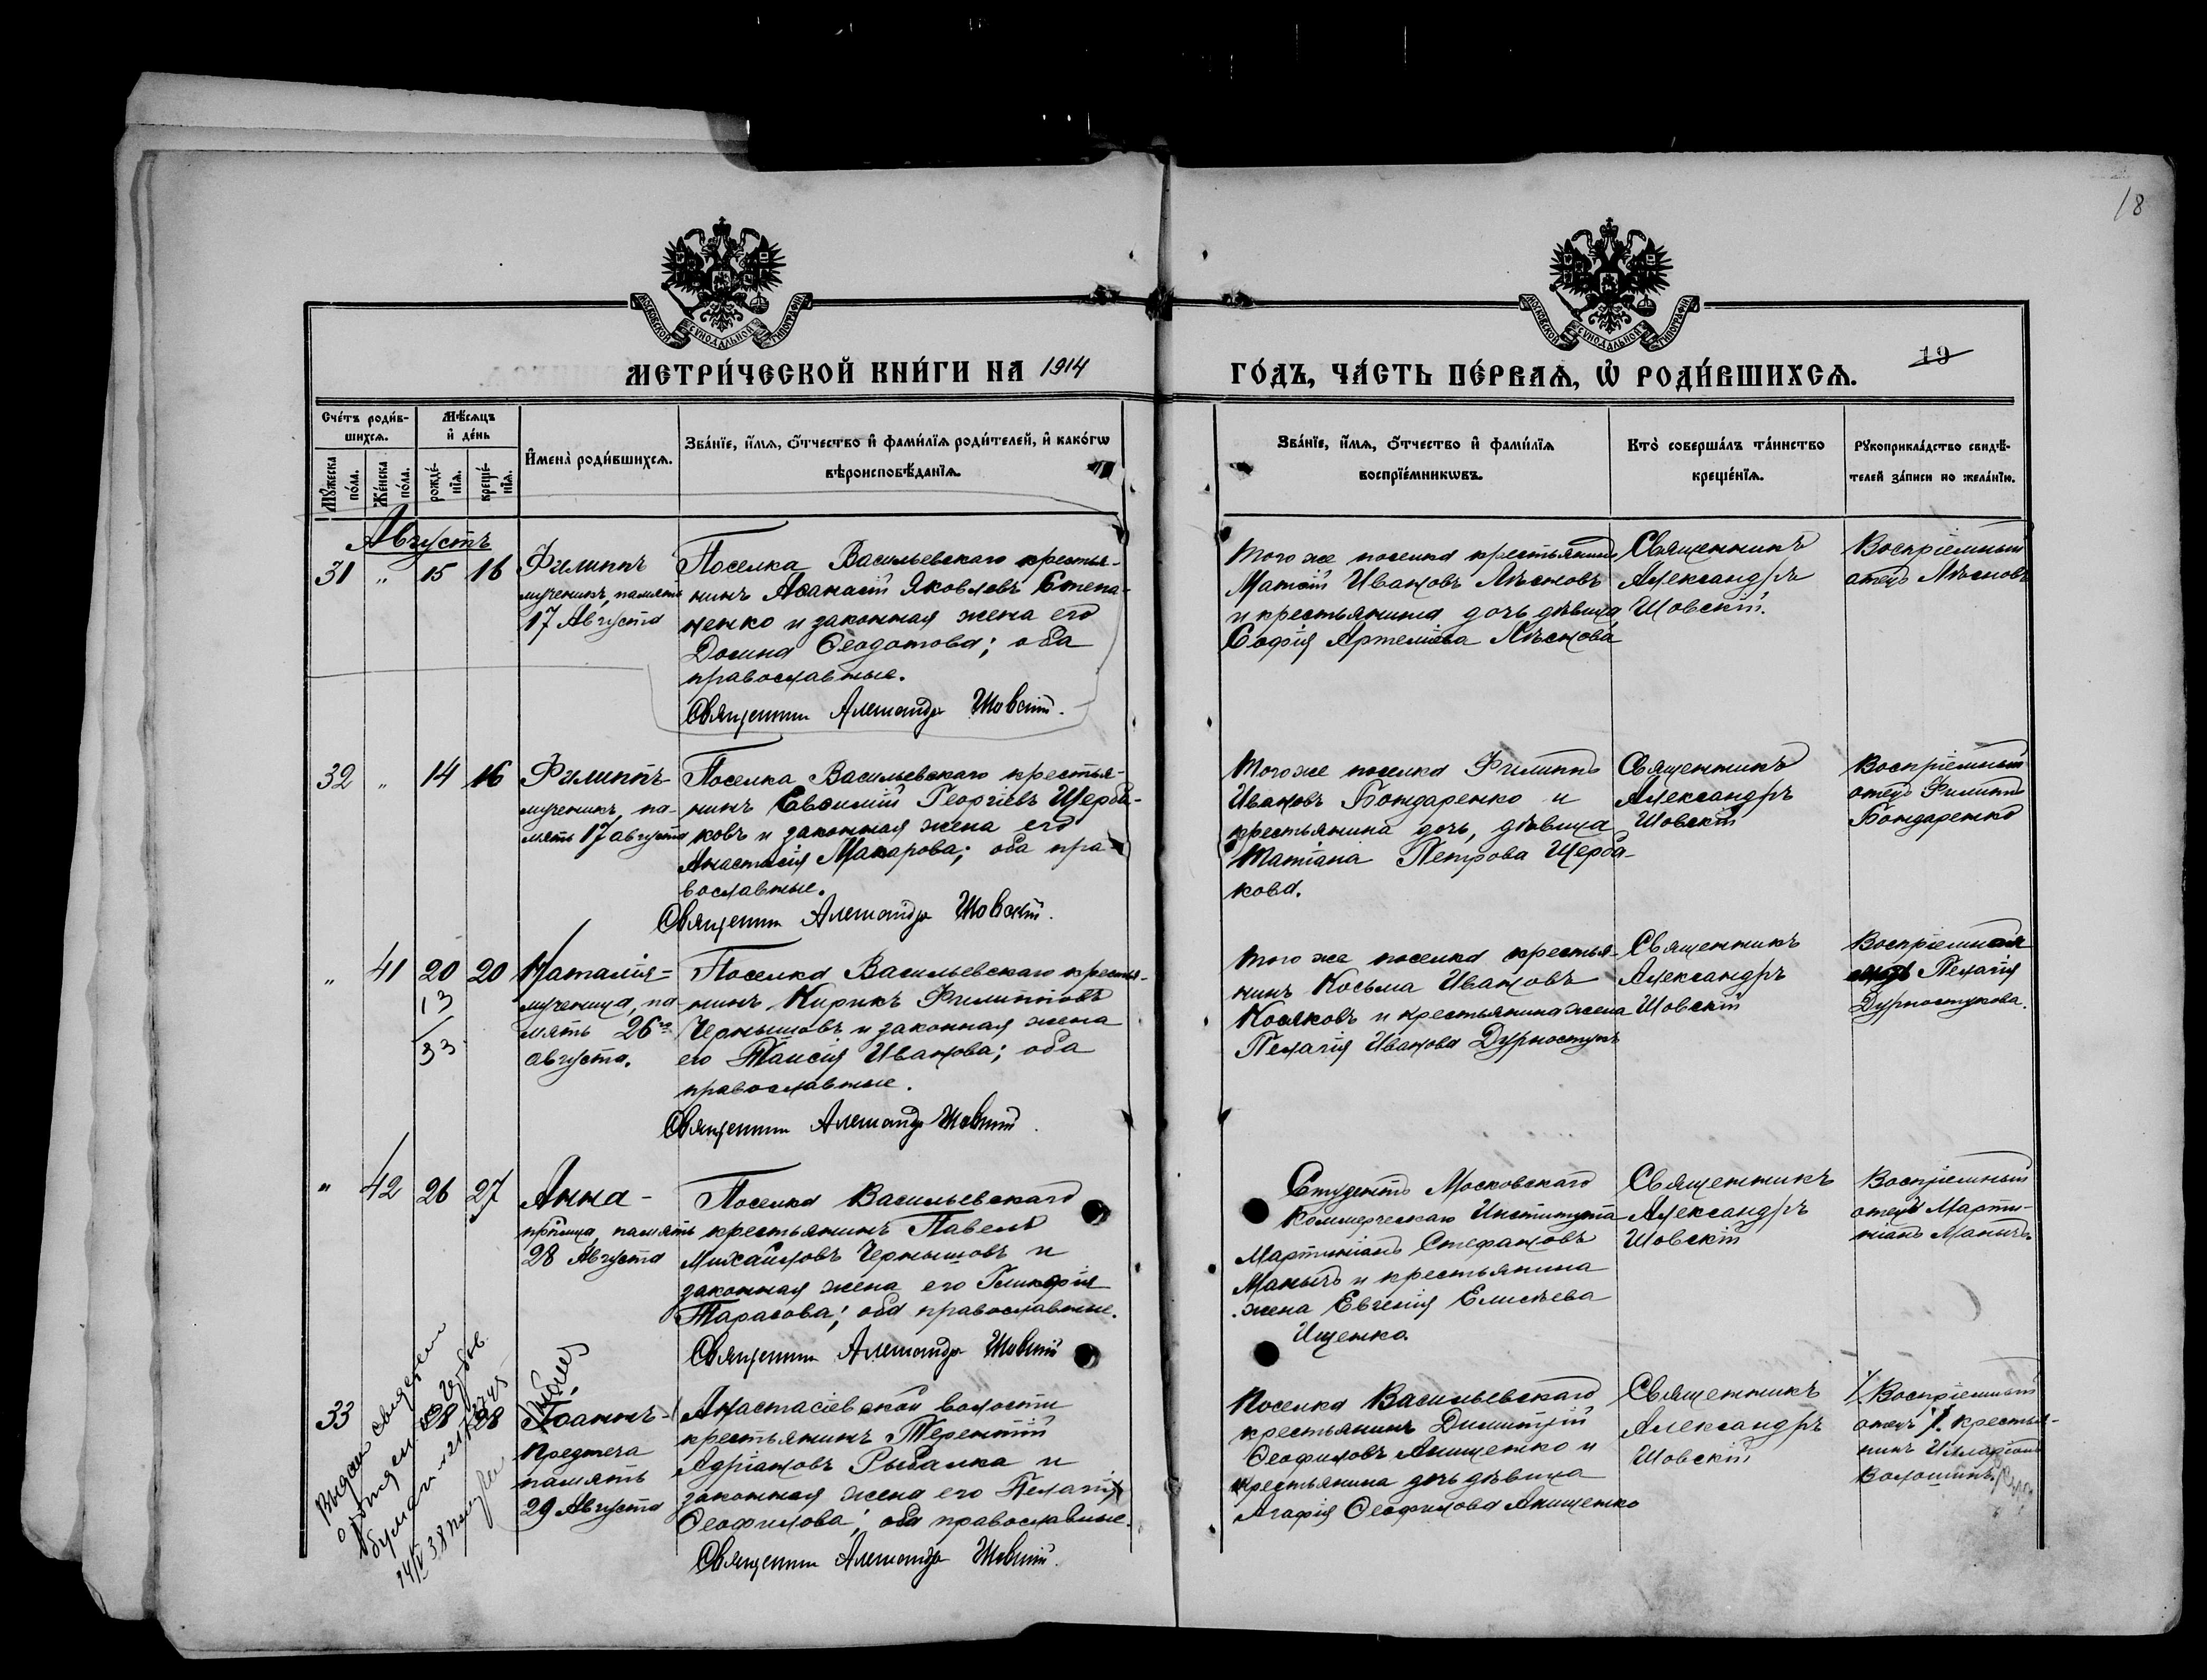 18
МОСКОВСКОЙ СѴНОДАЛЬНОЙ ТИПОГРАФІИ
МОСКОВСКОЙ СѴНОДАЛЬНОЙ ТИПОГРАФІИ
МЕТРИ́ЧЕСКОЙ КНИ́ГИ НА 1914
ГО́ДЪ, ЧА́СТЬ ПЕ́РВАѦ, Ѡ҆ РОДИ́ВШИХСѦ.
19
Сче́тъ роди́в-
шихсѧ.
Мѣ́сѧцъ
и҆ де́нь
Мꙋ́жеска
по́ла.
Же́нска
по́ла.
рожде́-
нїѧ.
креще́-
нїѧ.
И҆мена̀ роди́вшихсѧ.
Зва́нїе, и҆́мѧ, ѻ҆́тчество и҆ фами́лїѧ роди́телей, и҆ како́гѡ
вѣроисповѣ́данїѧ.
Зва́нїе, и҆́мѧ, ѻ҆́тчество и҆ фами́лїѧ
воспрїе́мникѡвъ.
Кто̀ соверша́лъ та́инство
креще́нїѧ.
Рꙋкоприкла́дство свидѣ́-
телей за́писи по жела́нїю.
Августъ
31 " 15 16
Филиппъ
мученикъ, память
17 Августа
Поселка Васильевскаго крестья-
нинъ Аѳанасій Яковлевъ Степа-
ненко и законная жена его
Домна Ѳеодотова; оба
православные.
Священникъ Александръ Шовскій.
Того же поселка крестьянинъ
Матѳій Ивановъ Лѣсновъ
и крестьянина дочь дѣвица
Софія Артеміева Лѣснова
Священникъ
Александръ
Шовскій.
Воспріемный
отецъ Лѣсновъ
32 " 14 16
Филиппъ-
мученикъ, па-
мять 17 августа
Поселка Васильевскаго крестья-
нинъ Евѳимій Георгіевъ Щерба-
ковъ и законная жена его
Анастасія Макарова; оба пра-
вославные.
Священникъ Александръ Шовскій.
Того же поселка Филиппъ
Ивановъ Бондаренко и
крестьянина дочь, дѣвица
Татіана Петрова Щерба-
кова.
Священникъ
Александръ
Шовскій
Воспріемный
отецъ Филиппъ
Бондаренко
" 41 20 20
13
33
Наталія=
мученица, па-
мять 26го
августа.
Поселка Васильевскаго крестья-
нинъ Кирикъ Филипповъ
Чернышовъ и законная жена
его Таисія Иванова; оба
православные.
Священникъ Александръ Шовскій.
Того же поселка крестья-
нинъ Косьма Ивановъ
Косяковъ и крестьянина жена
Пелагія Иванова Дурноступъ
Священникъ
Александръ
Шовскій
Воспріемная
Пелагія
Дурноступова.
" 42 26 27
Анна-
прор̃чица, память
28 Августа
Поселка Васильевскаго
крестьянинъ Павелъ
Михайловъ Чернышовъ и
законная жена его Гликерія
Тарасова; оба православные.
Священникъ Александръ Шовскій
Студентъ Московскаго
Коммерческаго Института
Мартиніанъ Стефановъ
Манычъ и крестьянина
жена Евгенія Елисѣева
Ищенко.
Священникъ
Александръ
Шовскій
Воспріемный
отецъ Марти-
ніанъ Манычъ.
33 28 28
Іоаннъ-
Предтеча
память
29 Августа
Анастасіевской волости
крестьянинъ Терентій
Адріановъ Рыбалка и
законная жена его Пелагія
Ѳеофилова; оба православные.
Священникъ Александръ Шовскій.
Поселка Васильевскаго
крестьянинъ Димитрій
Ѳеофиловъ Анищенко и
крестьянина дочь дѣвица
Агафія Ѳеофилова Анищенко
Священникъ
Александръ
Шовскій
Воспріемный
отецъ крестья-
нинъ Илларіонъ
Волошинъ
Выдан свидетел
о рожден
14/IV 38